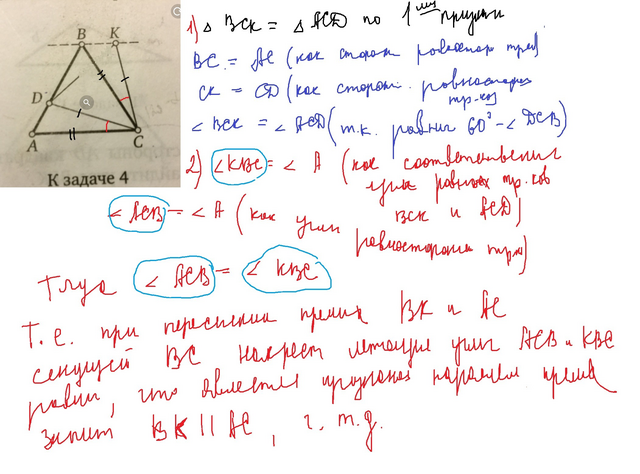 B K
D
A C
К задаче 4
1) △ BCK = △ ACD по 1 признаку
BC = AC (как сторон равностор треу)
CK = CD (как сторон. равностороннего
тр-ка)
∠ BCK = ∠ ACD (т.к. равны 60° - ∠ DCB)
2) ∠KBC = ∠ A (как соответственные
углы равных тр-ков
BCK и ACD)
∠ ACB = ∠ A (как углы
равносторонн тр-ка)
Тогда ∠ ACB = ∠ KBC
Т.е. при пересечении прямых BK и AC
секущей BC накрест лежащие углы ACB и KBC
равны, что является признаком параллел прямых
значит BK || AC, ч.т.д.